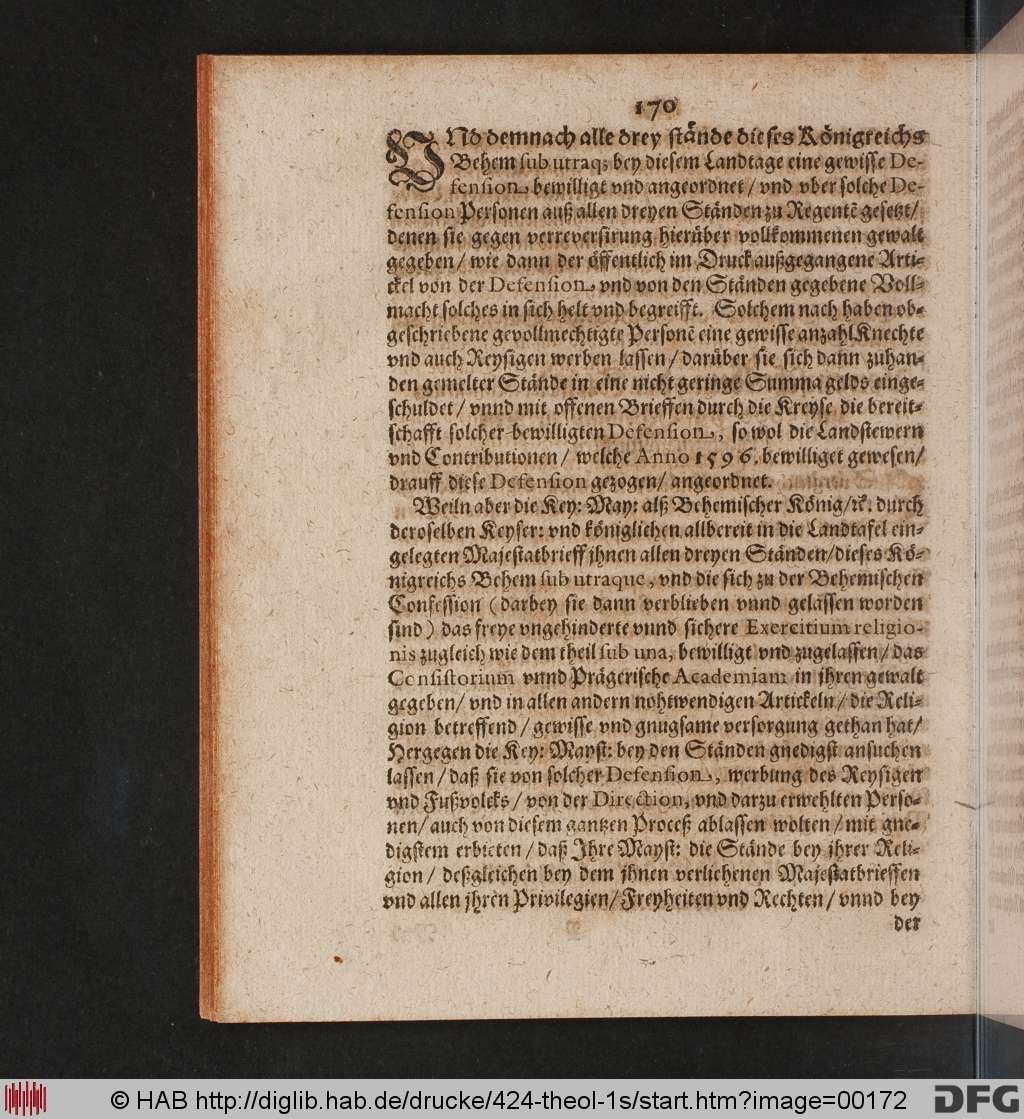 170
VNd demnach alle drey stände dieses Königreichs
Behem sub utraq; bey diesem Landtage eine gewisse De-
fension bewilligt vnd angeordnet / vnd vber solche De-
fension Personen auß allen dreyen Ständen zu Regentē gesetzt/
denen sie gegen verreversirung hierüber vollkommenen gewalt
gegeben / wie dann der öffentlich im Druck außgegangene Arti-
ckel von der Defension, vnd von den Ständen gegebene Voll-
macht solches in sich helt vnd begreifft. Solchem nach haben ob-
geschriebene gevollmechtigte Personē eine gewisse anzahl Knechte
vnd auch Reysigen werben lassen / darüber sie sich dann zuhan-
den gemelter Stände in eine nicht geringe Summa gelds einge-
schuldet / vnnd mit offenen Brieffen durch die Kreyse die bereit-
schafft solcher bewilligten Defension, so wol die Landstewern
vnd Contributionen / welche Anno 1596. bewilliget gewesen/
drauff diese Defension gezogen/ angeordnet.
Weiln aber die Key: May: alß Behemischer König/ꝛc. durch
deroselben Keyser: vnd königlichen allbereit in die Landtafel ein-
gelegten Majestatbrieff jhnen allen dreyen Ständen/dieses Kö-
nigreichs Behem sub utraque, vnd die sich zu der Behemischen
Confession (darbey sie dann verblieben vnnd gelassen worden
sind) das freye vngehinderte vnnd sichere Exercitium religio-
nis zugleich wie dem theil sub una, bewilligt vnd zugelassen / das
Consistorium vnnd Prägerische Academiam in jhren gewalt
gegeben/ vnd in allen andern nohtwendigen Artickeln / die Reli-
gion betreffend / gewisse vnd gnugsame versorgung gethan hat/
Hergegen die Key: Mayst: bey den Ständen gnedigst ansuchen
lassen / daß sie von solcher Defension, werbung des Reysigen
vnd Fußvolcks / von der Direction, vnd darzu erwehlten Perso-
nen/ auch von diesem gantzen Proceß ablassen wolten / mit gne-
digstem erbieten / daß Ihre Mayst: die Stände bey jhrer Reli-
gion / deßgleichen bey dem jhnen verlichenen Majestatbrieffen
vnd allen jhren Privilegien/ Freyheiten vnd Rechten / vnnd bey
der
© HAB http://diglib.hab.de/drucke/424-theol-1s/start.htm?image=00172
DFG